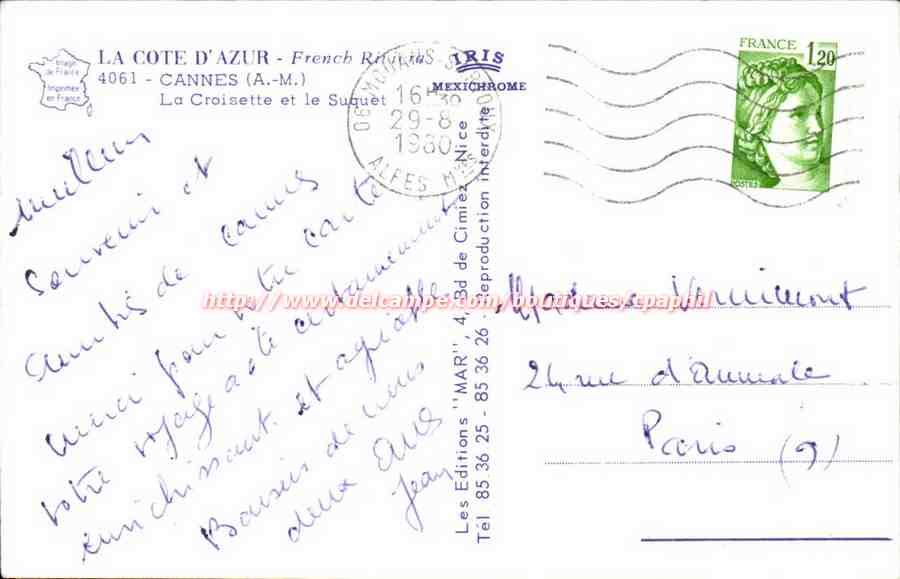 Image
de France
Imprimée
en France
LA COTE D'AZUR - French Riviera
4061 - CANNES (A.-M.)
La Croisette et le Suquet
IRIS
MEXICHROME
16H30
29-8
1980
ALPES Mmes
FRANCE
1,20
POSTES
Souvenir et
amitiés de cannes
merci pour votre carte
votre voyage a été certainement
enrichissant et agréable
Baisers de nous
deux
Jean
Les Editions "MAR", 4, Bd de Cimiez - Nice
Tél 85 36 25 - 85 36 26 Reproduction interdite
http://www.delcampe.com/boutiques/cpaphil
24 rue d'Aumale
Paris (9)